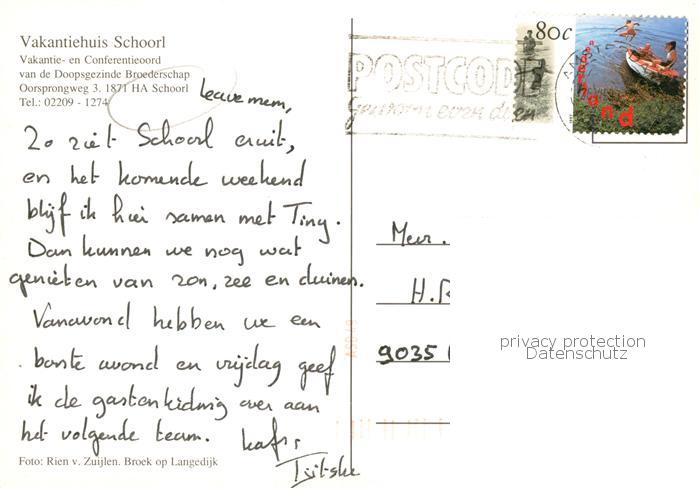 Vakantiehuis Schoorl
Vakantie- en Conferentieoord
van de Doopsgezinde Broederschap
Oorsprongweg 3. 1871 HA Schoorl
Tel.: 02209 - 1274
leave mem,
Zo ziet Schoorl eruit,
en het komende weekend
blijf ik hier samen met Tiny.
Dan kunnen we nog wat
genieten van zon, zee en duinen.
Vanavond hebben we een
bonte avond en vrijdag geef
ik de gastenleiding over aan
het volgende team.
liefs,
Tjitske
Foto: Rien v. Zuijlen. Broek op Langedijk
80c
POSTCODE
Mevr.
H.
9035
privacy protection
Datenschutz